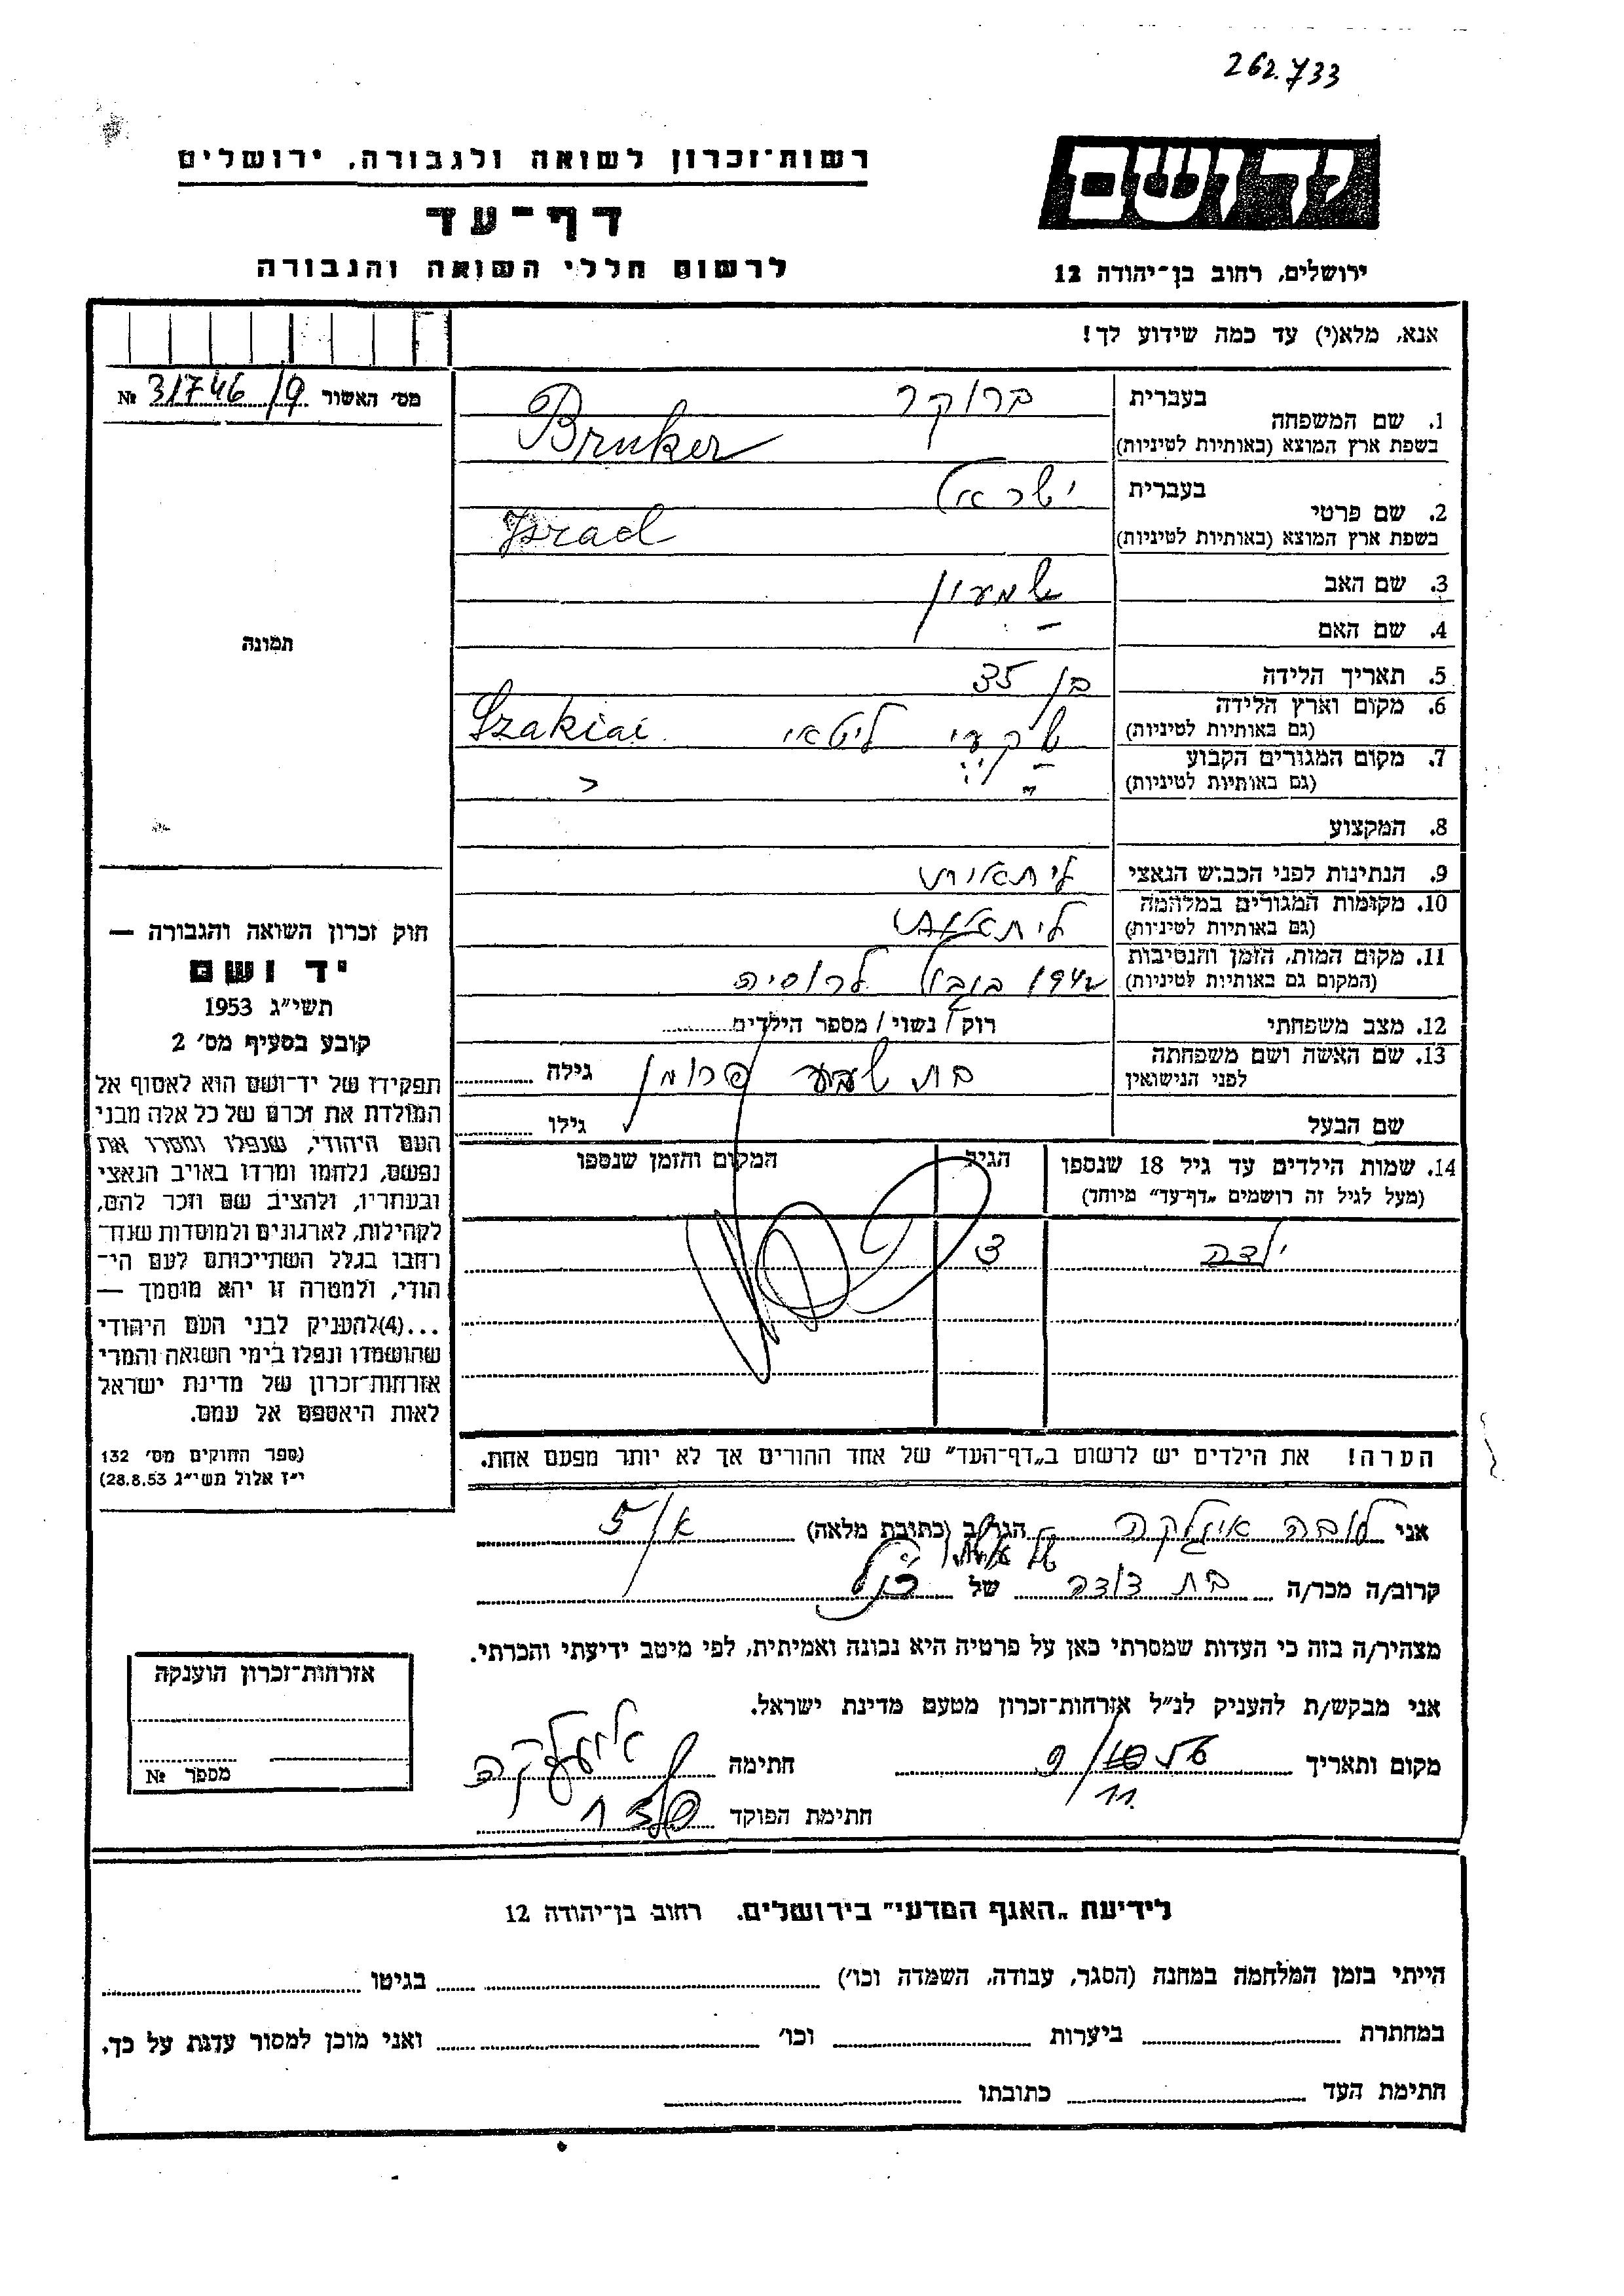 262.733
רשות־זכרון לשואה ולגבורה, ירושלים
יד ושם
דף־עד
לרשום חללי השואה והגבורה
ירושלים, רחוב בן־יהודה 12
אנא, מלא(י) עד כמה שידוע לך!
מס׳ האשור 31746/9 №
בעברית ברוקר
1. שם המשפחה
בשפת ארץ המוצא (באותיות לטיניות) Bruker
בעברית ישראל
2. שם פרטי
בשפת ארץ המוצא (באותיות לטיניות) Israel
3. שם האב שמעון
4. שם האם —
תמונה
5. תאריך הלידה בן 35
6. מקום וארץ הלידה
(גם באותיות לטיניות) שקי ליטא Szakiai
7. מקום המגורים הקבוע
(גם באותיות לטיניות)
8. המקצוע
9. הנתינות לפני הכבוש הנאצי ליתאית
10. מקומות המגורים במלחמה
(גם באותיות לטיניות)
11. מקום המות, הזמן והנסיבות
(המקום גם באותיות לטיניות) 1942 בגבול לרוסיה
12. מצב משפחתי רוק / נשוי / מספר הילדים
13. שם האשה ושם משפחתה
לפני הנישואין בת שבע פרומן גילה
שם הבעל גילו
14. שמות הילדים עד גיל 18 שנספו הגיל המקום והזמן שנספו
(מעל לגיל זה רושמים „דף־עד״ מיוחד)
ילדה 3
הערה! את הילדים יש לרשום ב„דף־העד״ של אחד ההורים אך לא יותר מפעם אחת.
חוק זכרון השואה והגבורה —
יד ושם
תשי״ג 1953
קובע בסעיף מס׳ 2
תפקידו של יד־ושם הוא לאסוף אל
המולדת את זכרם של כל אלה מבני
העם היהודי, שנפלו ומסרו את
נפשם, נלחמו ומרדו באויב הנאצי
ובעוזריו, ולהציב שם וזכר להם,
לקהילות, לארגונים ולמוסדות שנח־
רבו בגלל השתייכותם לעם הי־
הודי, ולמטרה זו יהא מוסמך —
...(4)להעניק לבני העם היהודי
שהושמדו ונפלו בימי השואה והמרי
אזרחות־זכרון של מדינת ישראל
לאות היאספם אל עמם.
(ספר החוקים מס׳ 132
י״ז אלול תשי״ג 28.8.53)
אני לובה הגר/ב (כתובת מלאה) א/5
קרוב/ה מכר/ה בת דודה של הנ״ל
מצהיר/ה בזה כי העדות שמסרתי כאן על פרטיה היא נכונה ואמיתית, לפי מיטב ידיעתי והכרתי.
אני מבקש/ת להעניק לנ״ל אזרחות־זכרון מטעם מדינת ישראל.
מקום ותאריך 9/11 56 חתימה
חתימת הפוקד
אזרחות־זכרון הוענקה
מספר №
לידיעת „האגף המדעי״ בירושלים, רחוב בן־יהודה 12
הייתי בזמן המלחמה במחנה (הסגר, עבודה, השמדה וכו׳) בגיטו
במחתרת ביערות וכו׳ ואני מוכן למסור עדות על כך.
חתימת העד כתובתו